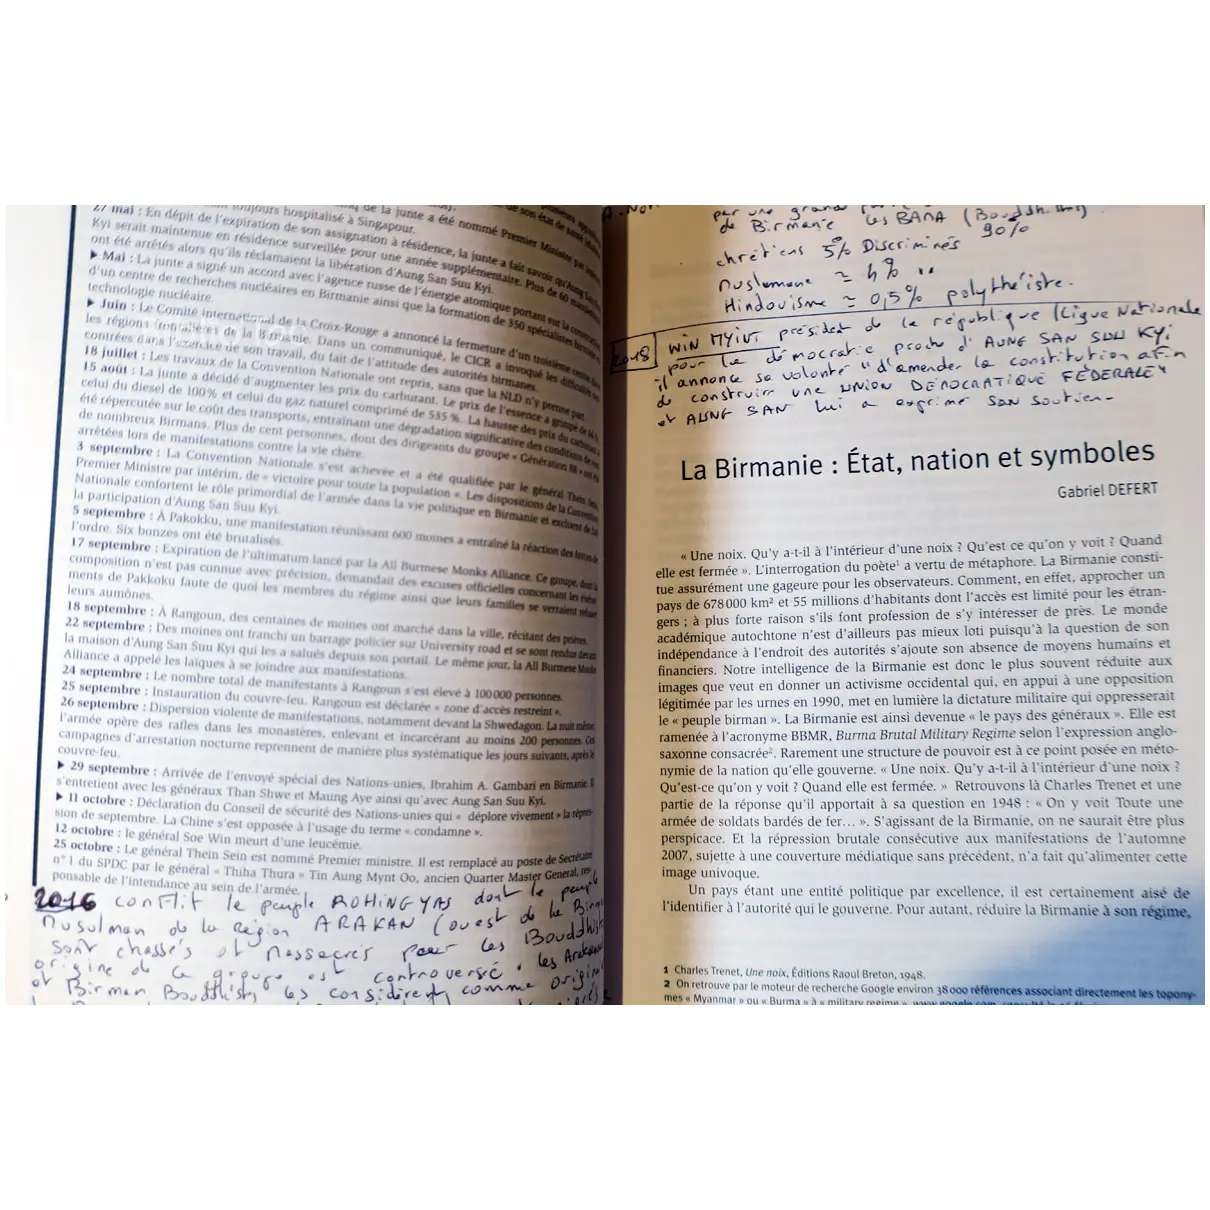 toujours hospitalisé à Singapour.
de la junte a été nommé Premier Ministre par
27 mai : En dépit de l'expiration de son assignation à résidence, la junte a fait savoir qu'Aung San Suu
Kyi serait maintenue en résidence surveillée pour une année supplémentaire. Plus de 60
ont été arrêtés alors qu'ils réclamaient la libération d'Aung San Suu Kyi.
▶ Mai : La junte a signé un accord avec l'agence russe de l'énergie atomique portant sur la
d'un centre de recherches nucléaires en Birmanie ainsi que la formation de 350 spécialistes
technologie nucléaire.
▶ Juin : Le Comité international de la Croix-Rouge a annoncé la fermeture d'un troisième centre dans
les régions frontalières de la Birmanie. Dans un communiqué, le CICR a invoqué les difficultés
contrées dans l'exercice de son travail, du fait de l'attitude des autorités birmanes.
18 juillet : Les travaux de la Convention Nationale ont repris, sans que la NLD n'y prenne part.
15 août : La junte a décidé d'augmenter les prix du carburant. Le prix de l'essence a grimpé de
celui du diesel de 100 % et celui du gaz naturel comprimé de 535 %. La hausse des prix du carburant a
été répercutée sur le coût des transports, entraînant une dégradation significative des conditions de
de nombreux Birmans. Plus de cent personnes, dont des dirigeants du groupe « Génération 88 » ont été
arrêtées lors de manifestations contre la vie chère.
3 septembre : La Convention Nationale s'est achevée et a été qualifiée par le général Thein Sein,
Premier Ministre par intérim, de « victoire pour toute la population ». Les dispositions de la Convention
Nationale confortent le rôle primordial de l'armée dans la vie politique en Birmanie et excluent de
la participation d'Aung San Suu Kyi.
5 septembre : À Pakokku, une manifestation réunissant 600 moines a entraîné la réaction des forces de
l'ordre. Six bonzes ont été brutalisés.
17 septembre : Expiration de l'ultimatum lancé par la All Burmese Monks Alliance. Ce groupe, dont la
composition n'est pas connue avec précision, demandait des excuses officielles concernant les
ments de Pakkoku faute de quoi les membres du régime ainsi que leurs familles se verraient refuser
leurs aumônes.
18 septembre : À Rangoun, des centaines de moines ont marché dans la ville, récitant des prières.
22 septembre : Des moines ont franchi un barrage policier sur University road et se sont rendus devant
la maison d'Aung San Suu Kyi qui les a salués depuis son portail. Le même jour, la All Burmese Monks
Alliance a appelé les laïques à se joindre aux manifestations.
24 septembre : Le nombre total de manifestants à Rangoun s'est élevé à 100 000 personnes.
25 septembre : Instauration du couvre-feu. Rangoun est déclarée « zone d'accès restreint ».
26 septembre : Dispersion violente de manifestations, notamment devant la Shwedagon. La nuit même,
l'armée opère des rafles dans les monastères, enlevant et incarcérant au moins 200 personnes. Ces
campagnes d'arrestation nocturne reprennent de manière plus systématique les jours suivants, après le
couvre-feu.
▶ 29 septembre : Arrivée de l'envoyé spécial des Nations-unies, Ibrahim A. Gambari en Birmanie. Il
s'entretient avec les généraux Than Shwe et Maung Aye ainsi qu'avec Aung San Suu Kyi.
▶ 11 octobre : Déclaration du Conseil de sécurité des Nations-unies qui « déplore vivement » la répres-
sion de septembre. La Chine s'est opposée à l'usage du terme « condamne ».
12 octobre : le général Soe Win meurt d'une leucémie.
25 octobre : Le général Thein Sein est nommé Premier ministre. Il est remplacé au poste de Secrétaire
n° 1 du SPDC par le général « Thiha Thura » Tin Aung Mynt Oo, ancien Quarter Master General, res-
ponsable de l'intendance au sein de l'armée.
2016 conflit le peuple ROHINGYAS dont le peuple
musulman de la région ARAKAN (ouest de la
sont chassés et massacrés par les Bouddhistes
origine de ce groupe est controversé. les
et Birman Bouddhistes les considèrent comme
par une grande
de Birmanie les BAMA (Bouddhistes)
90%
chrétiens 5% Discriminés
musulmane ≃ 4% "
Hindouisme ≃ 0,5% polythéiste.
2018 WIN MYINT président de la république (Ligue Nationale
pour la démocratie proche d'AUNG SAN SUU KYI
il annonce sa volonté "d'amender la constitution afin
de construire une UNION DÉMOCRATIQUE FÉDÉRALE"
et AUNG SAN lui a exprimé SON Soutien-
La Birmanie : État, nation et symboles
Gabriel DEFERT
« Une noix. Qu'y a-t-il à l'intérieur d'une noix ? Qu'est ce qu'on y voit ? Quand
elle est fermée ». L'interrogation du poète¹ a vertu de métaphore. La Birmanie consti-
tue assurément une gageure pour les observateurs. Comment, en effet, approcher un
pays de 678 000 km² et 55 millions d'habitants dont l'accès est limité pour les étran-
gers ; à plus forte raison s'ils font profession de s'y intéresser de près. Le monde
académique autochtone n'est d'ailleurs pas mieux loti puisqu'à la question de son
indépendance à l'endroit des autorités s'ajoute son absence de moyens humains et
financiers. Notre intelligence de la Birmanie est donc le plus souvent réduite aux
images que veut en donner un activisme occidental qui, en appui à une opposition
légitimée par les urnes en 1990, met en lumière la dictature militaire qui oppresserait
le « peuple birman ». La Birmanie est ainsi devenue « le pays des généraux ». Elle est
ramenée à l'acronyme BBMR, Burma Brutal Military Regime selon l'expression anglo-
saxonne consacrée². Rarement une structure de pouvoir est à ce point posée en méto-
nymie de la nation qu'elle gouverne. « Une noix. Qu'y a-t-il à l'intérieur d'une noix ?
Qu'est-ce qu'on y voit ? Quand elle est fermée. » Retrouvons là Charles Trenet et une
partie de la réponse qu'il apportait à sa question en 1948 : « On y voit Toute une
armée de soldats bardés de fer… ». S'agissant de la Birmanie, on ne saurait être plus
perspicace. Et la répression brutale consécutive aux manifestations de l'automne
2007, sujette à une couverture médiatique sans précédent, n'a fait qu'alimenter cette
image univoque.
Un pays étant une entité politique par excellence, il est certainement aisé de
l'identifier à l'autorité qui le gouverne. Pour autant, réduire la Birmanie à son régime,
1 Charles Trenet, Une noix, Éditions Raoul Breton, 1948.
2 On retrouve par le moteur de recherche Google environ 38 000 références associant directement les topony-
mes « Myanmar » ou « Burma » à « military regime ». www.google.com